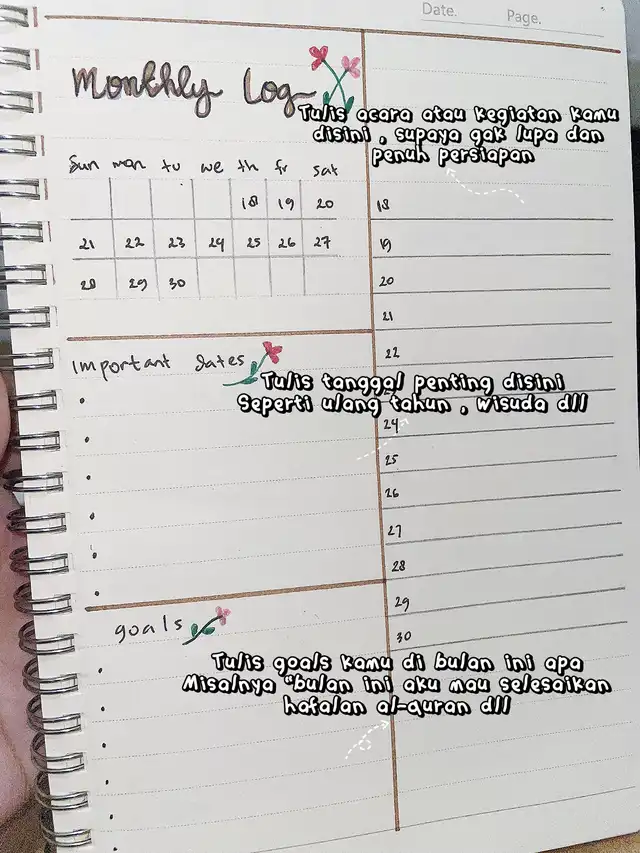 Date. Page.
Monthly Log
Tulis acara atau kegiatan kamu
disini , supaya gak lupa dan
penuh persiapan
Sun mon tu we th fr sat
18 19 20
21 22 23 24 25 26 27
28 29 30
important dates
Tulis tanggal penting disini
Seperti ulang tahun , wisuda dll
goals
Tulis goals kamu di bulan ini apa
Misalnya "bulan ini aku mau selesaikan
hafalan al-quran dll
18
19
20
21
22
24
25
26
27
28
29
30